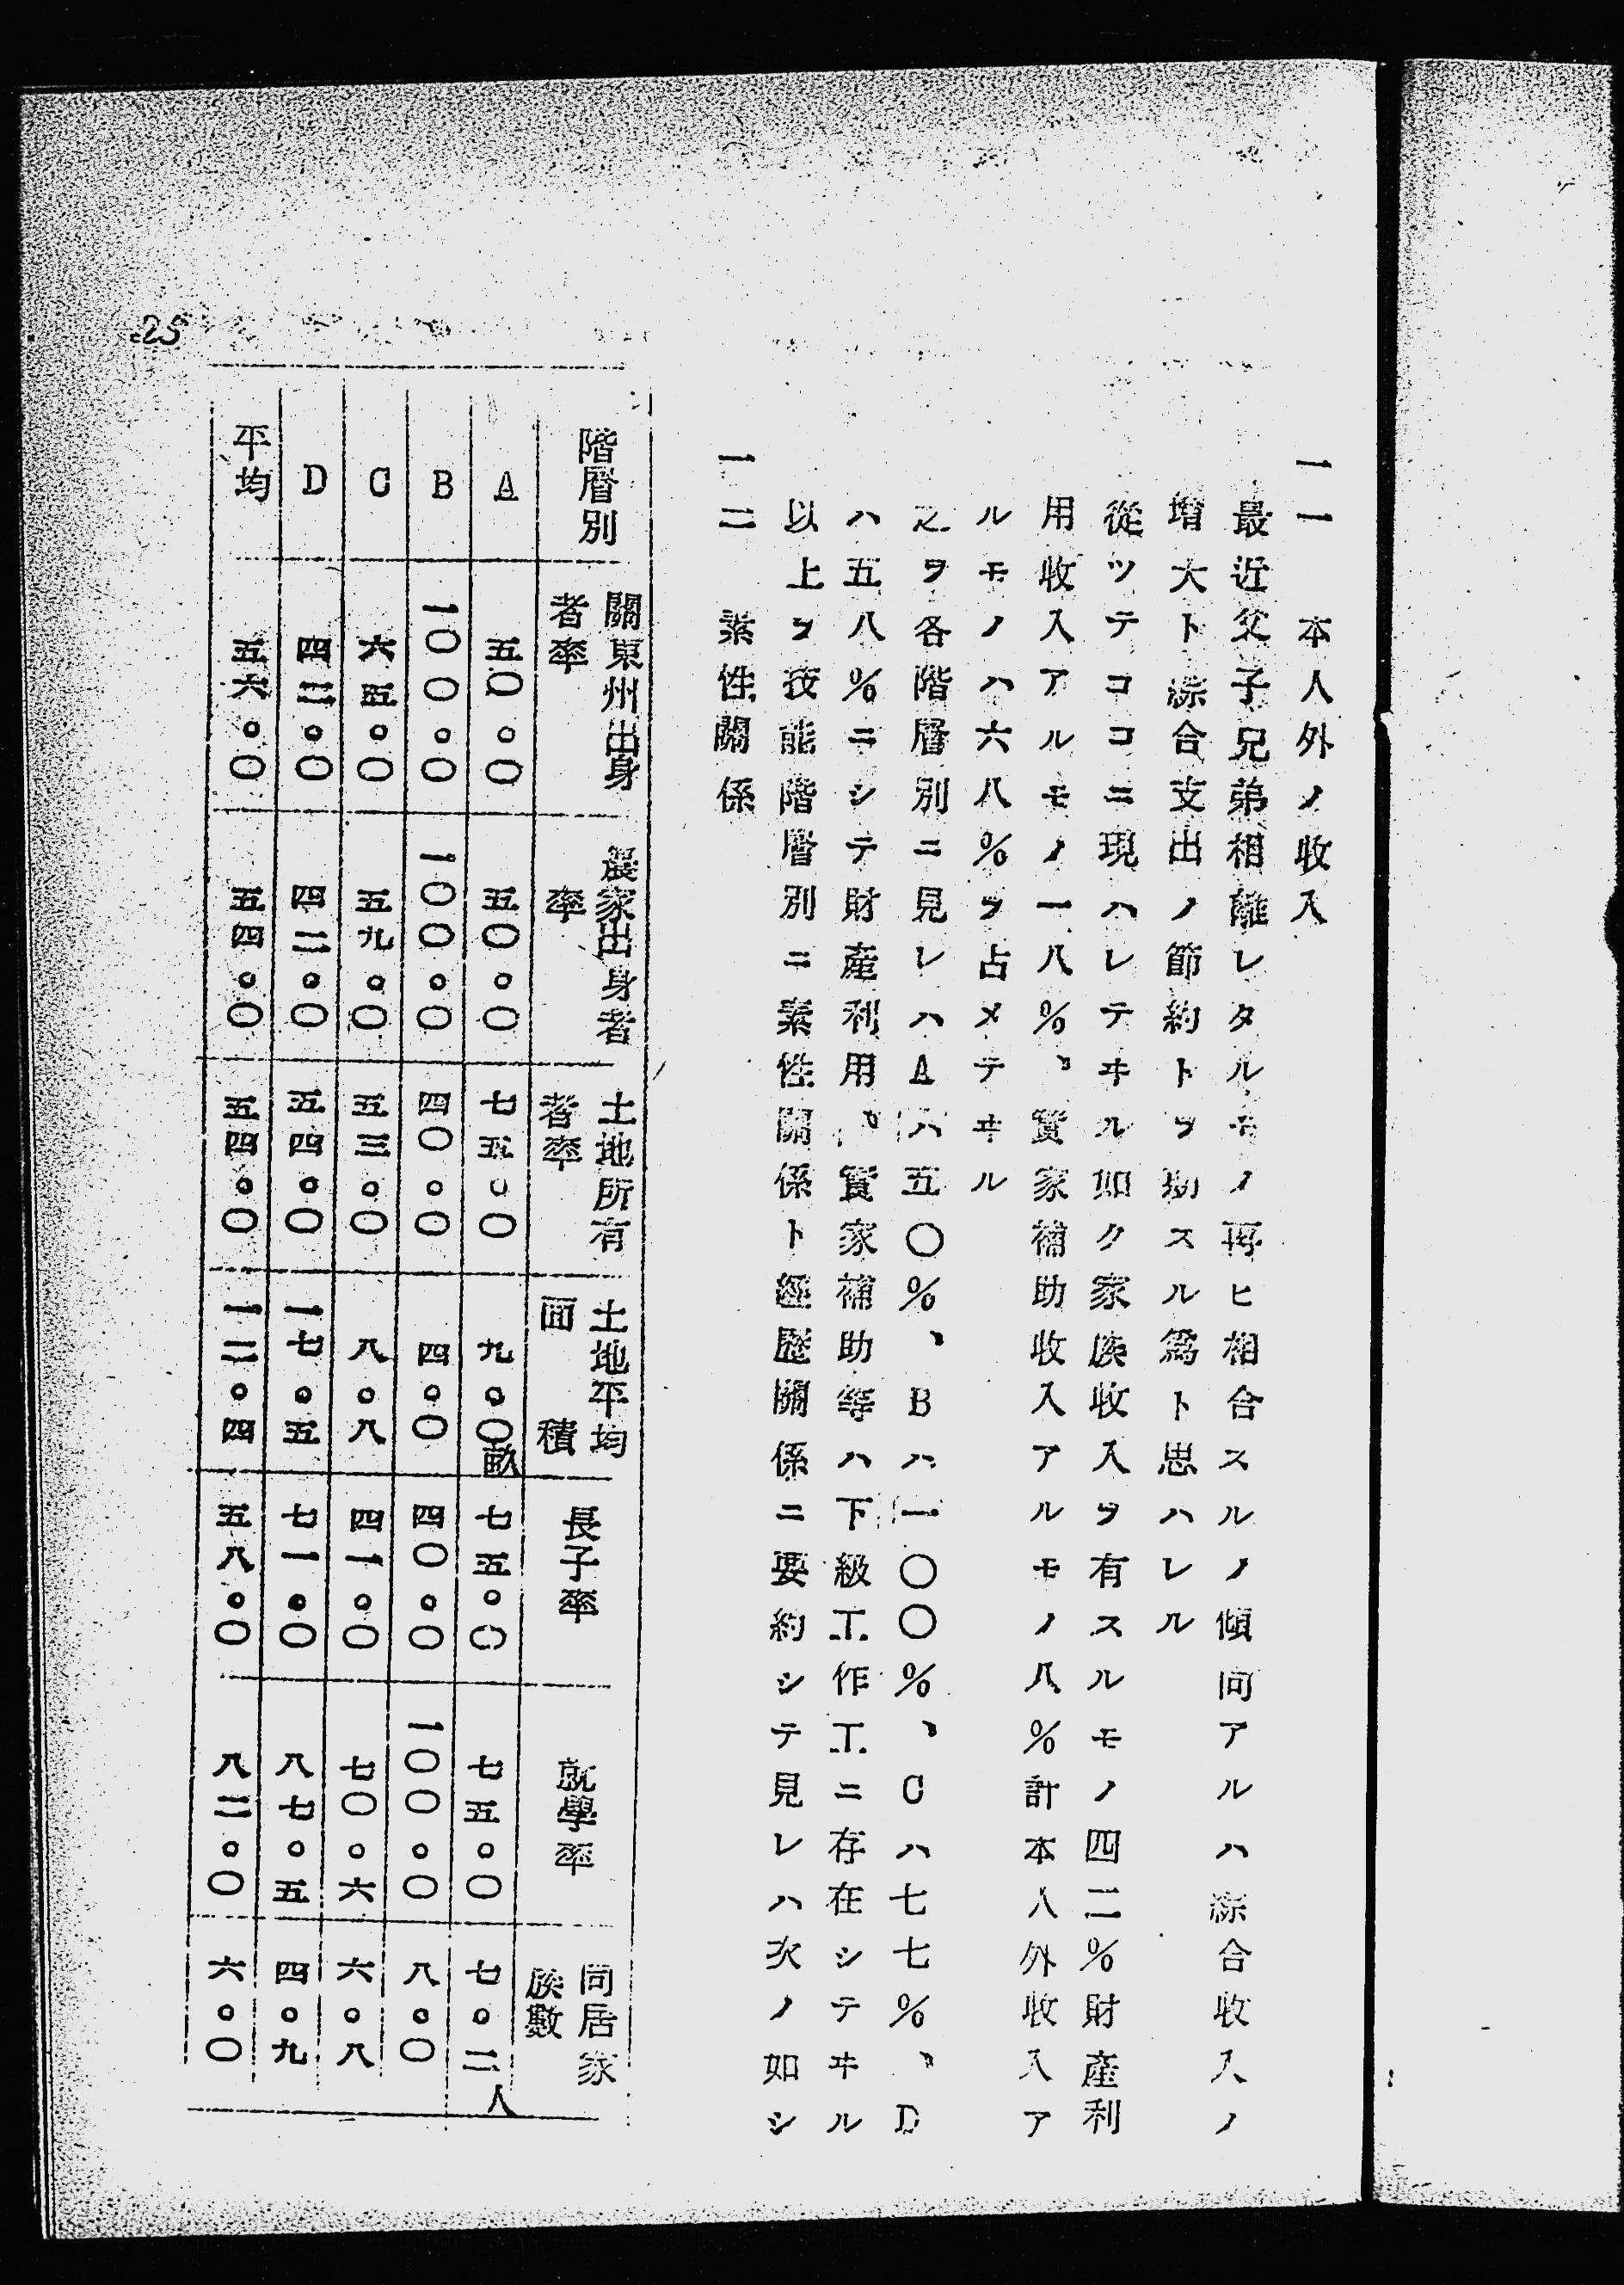 一一　本人外ノ收入
最近父子兄弟相離レタルモノ再ヒ相合スルノ傾向アルハ綜合收入ノ
增大ト綜合支出ノ節約トヲ助スル爲ト思ハレル
從ツテココニ現ハレテヰル如ク家族收入ヲ有スルモノ四二%財產利
用收入アルモノ一八%、實家補助收入アルモノ八%計本人外收入ア
ルモノハ六八%ヲ占メテヰル
之ヲ各階層別ニ見レハAハ五〇%、Bハ一〇〇%、Cハ七七%、D
ハ五八%ニシテ財產利用、實家補助等ハ下級工作工ニ存在シテヰル
以上ヲ技能階層別ニ素性關係ト經歷關係ニ要約シテ見レハ次ノ如シ
一二　素性關係
階層別　關東州出身者率　農家出身者率　土地所有者率　土地平均面積　長子率　就學率　同居家族數
A　五〇。〇　五〇。〇　七五。〇　九。〇畝　七五。〇　七五。〇　七。二人
B　一〇〇。〇　一〇〇。〇　四〇。〇　四。〇　四〇。〇　一〇〇。〇　八。〇
C　六五。〇　五九。〇　五三。〇　八。八　四一。〇　七〇。六　六。八
D　四二。〇　四二。〇　五四。〇　一七。五　七一。〇　八七。五　四。九
平均　五六。〇　五四。〇　五四。〇　一二。四　五八。〇　八二。〇　六。〇
25